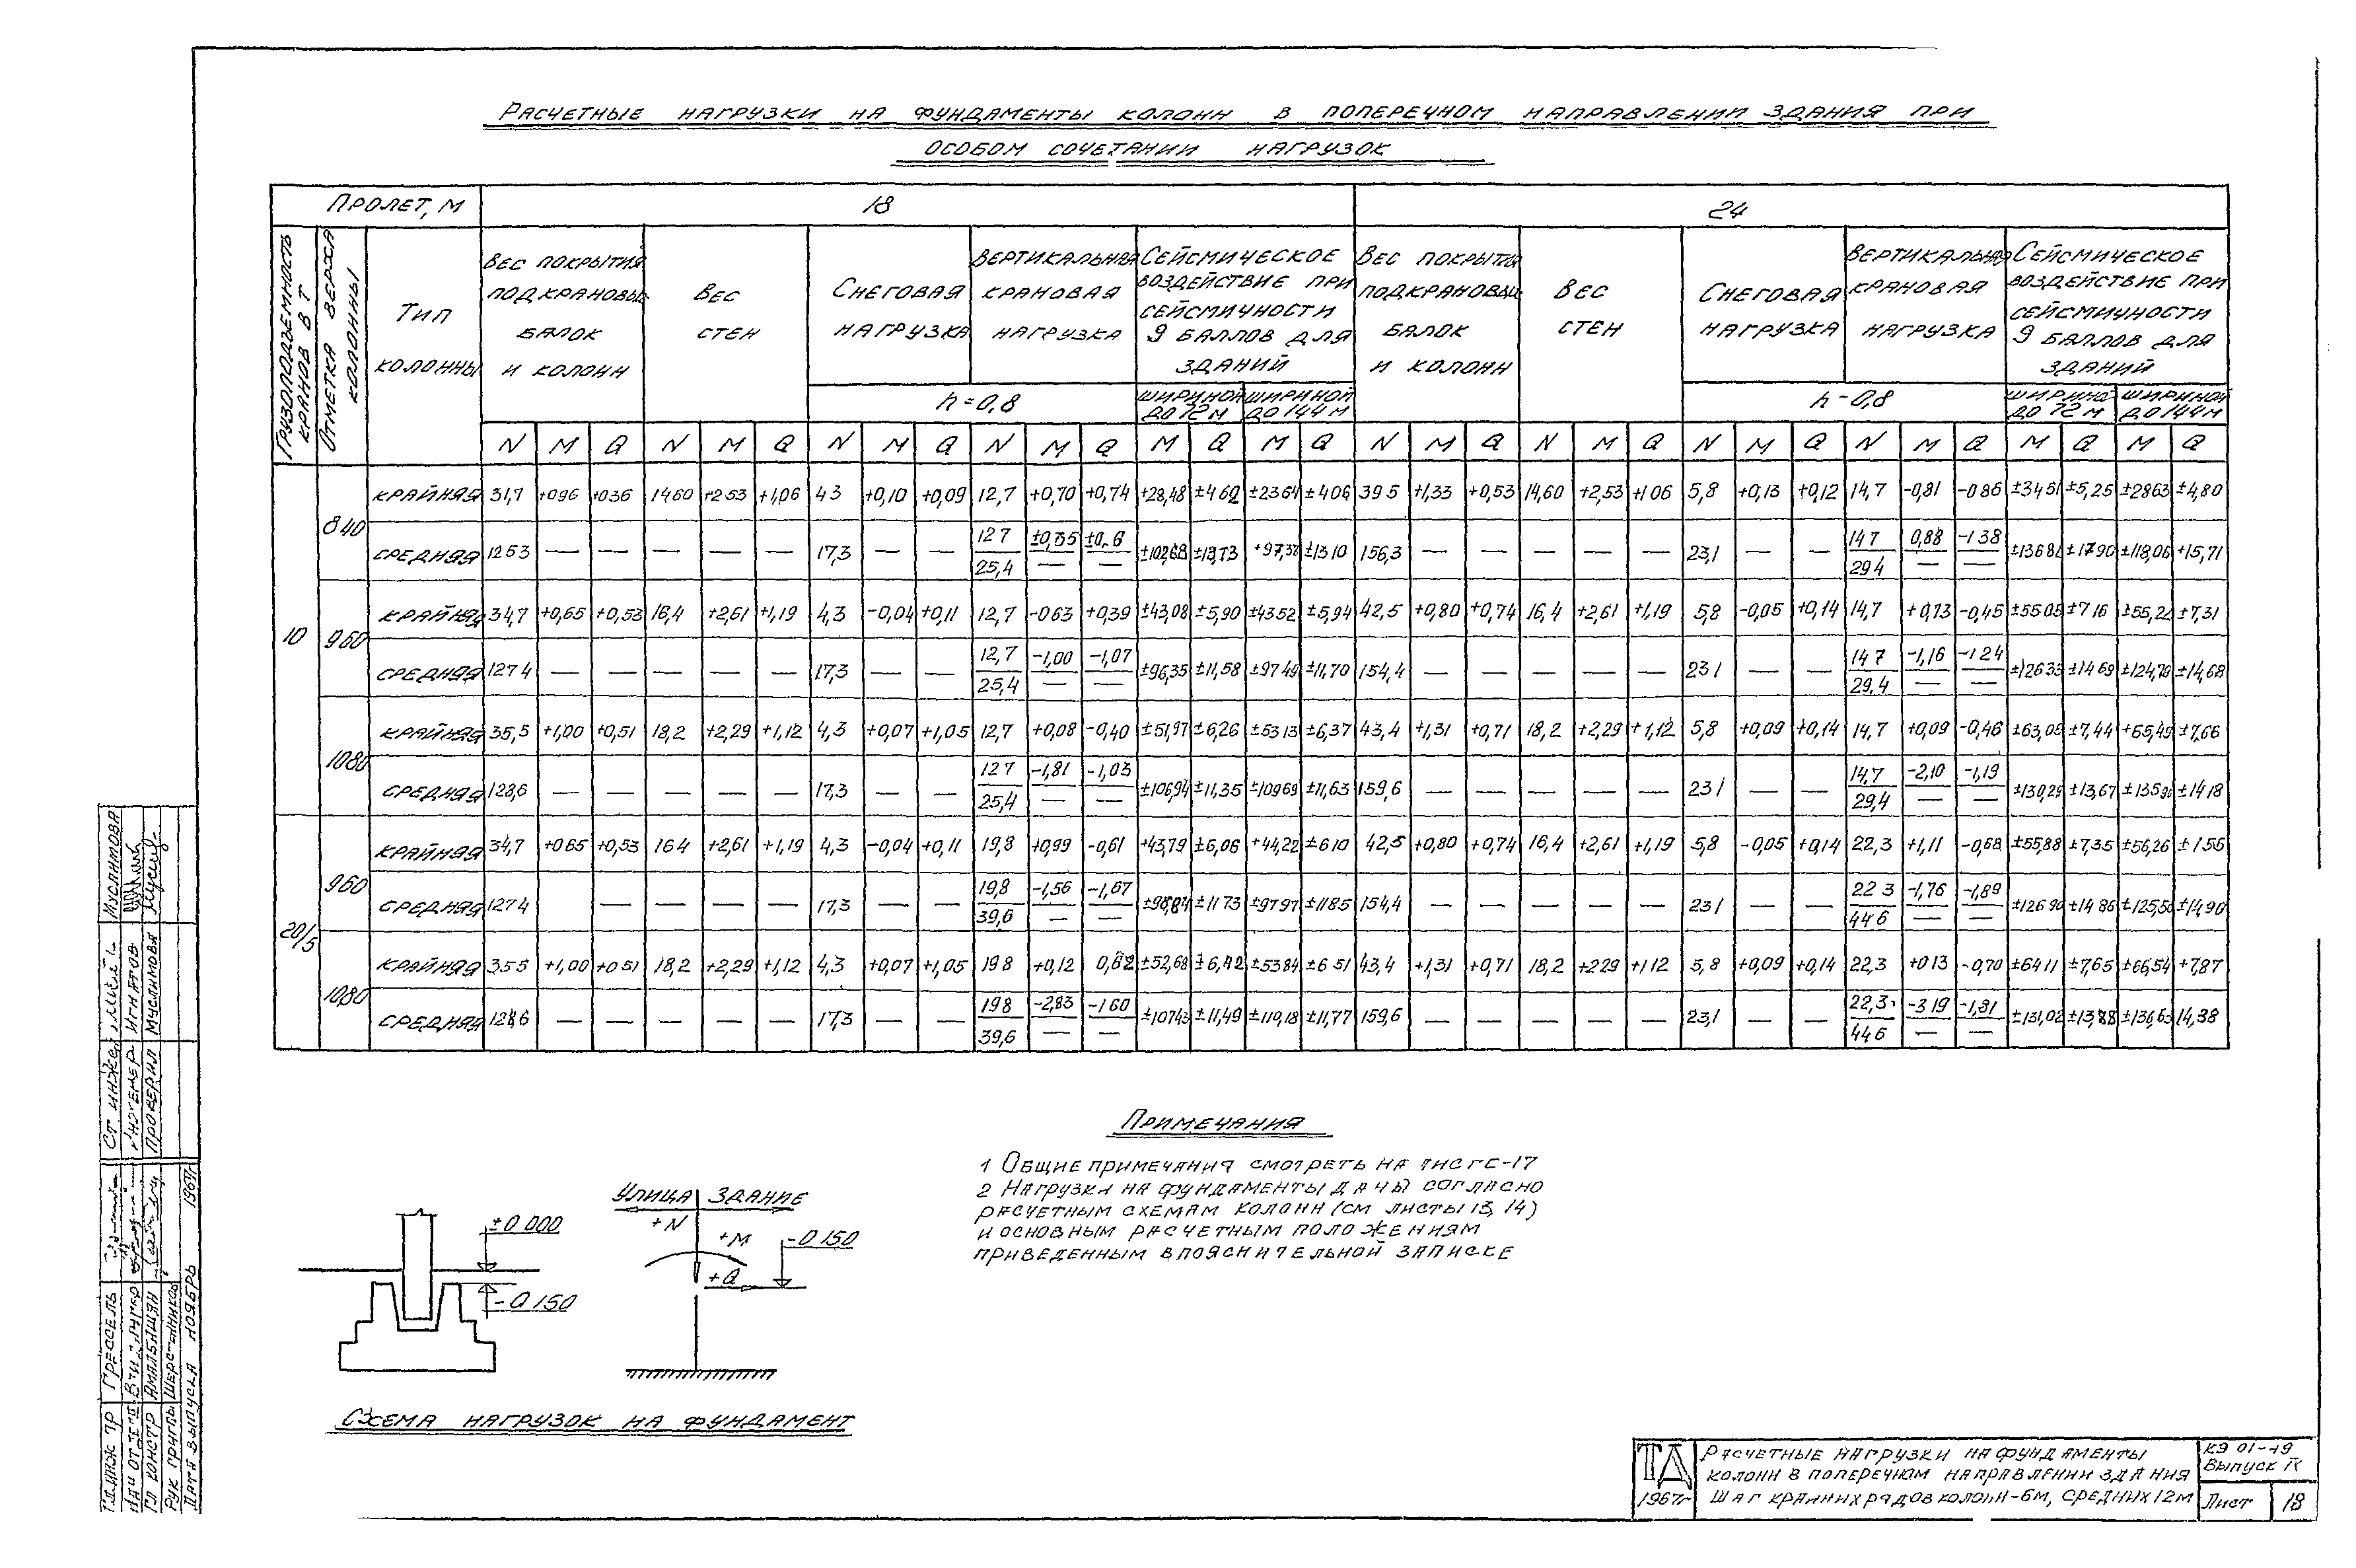 Расчетные нагрузки на фундаменты колонн в поперечном направлении здания при
особом сочетании нагрузок
Пролет, м 18 24
Грузоподъемность кранов в т
Отметка верха колонны
Тип колонны
Вес покрытия подкрановых балок и колонн
Вес стен
Снеговая нагрузка
Вертикальная крановая нагрузка
Сейсмическое воздействие при сейсмичности 9 баллов для зданий
Вес покрытия подкрановых балок и колонн
Вес стен
Снеговая нагрузка
Вертикальная крановая нагрузка
Сейсмическое воздействие при сейсмичности 9 баллов для зданий
h=0,8 шириной до 72 м шириной до 144 м h-0,8 шириной до 72 м шириной до 144 м
N M Q N M Q N M Q N M Q M Q M Q N M Q N M Q N M Q N M Q M Q M Q
10
840
крайняя 31,7 +096 +036 1460 +253 +1,06 43 +0,10 +0,09 12,7 +0,70 +0,74 +28,48 ±460 ±2364 ±406 395 +1,33 +0,53 14,60 +2,53 +106 5,8 +0,13 +0,12 14,7 -0,81 -086 ±3451 ±5,25 ±2863 ±4,80
средняя 1253 — — — — — 17,3 — — 127 ±0,35
25,4 — — ±13,73 ±1310 156,3 — — — — — 23,1 — — 147 0,88 -138
294 — — ±1790 ±118,06 +15,71
960
крайняя 34,7 +0,65 +0,53 16,4 +2,61 +1,19 4,3 -0,04 +0,11 12,7 -063 +0,39 ±43,08 ±5,90 ±4352 ±5,94 42,5 +0,80 +0,74 16,4 +2,61 +1,19 5,8 -0,05 +0,14 14,7 +0,73 -0,45 ±5505 ±716 ±55,22 ±7,31
средняя 1274 — — — — — 17,3 — — 12,7 -1,00 -1,07
25,4 — — ±96,35 ±11,58 ±9749 ±11,70 154,4 — — — — — 231 — — 147 -1,16 -124
29,4 — — ±12633 ±1469 ±124,70 ±14,68
1080
крайняя 35,5 +1,00 +0,51 18,2 +2,29 +1,12 4,3 +0,07 +1,05 12,7 +0,08 -0,40 ±51,97 ±6,26 ±5313 ±6,37 43,4 +1,31 +0,71 18,2 +2,29 +1,12 5,8 +0,09 +0,14 14,7 +0,09 -0,46 ±63,05 ±7,44 +65,49 ±7,66
средняя 128,6 — — — — — 17,3 — — 127 -1,81 -1,03
25,4 — — ±106,94 ±11,35 ±10969 ±11,63 159,6 — — — — — 231 — — 14,7 -2,10 -1,19
29,4 — — ±130,29 ±13,67 ±1418
20/5
960
крайняя 34,7 +065 +0,53 164 +2,61 +1,19 4,3 -0,04 +0,11 19,8 +0,99 -0,61 +43,79 ±6,06 +44,22 ±610 42,5 +0,80 +0,74 16,4 +2,61 +1,19 5,8 -0,05 +0,14 22,3 +1,11 -0,68 ±55,88 ±7,35 ±56,26 ±155
средняя 1274 — — — — 17,3 — — 19,8 -1,56 -1,67
39,6 — — ±98,84 ±1173 ±9797 ±1185 154,4 — — — — — 231 — — 223 -1,76 -1,89
446 — — ±12690 ±1486 ±125,50 ±14,90
1080
крайняя 355 +1,00 +051 18,2 +2,29 +1,12 4,3 +0,07 +1,05 198 +0,12 0,62 ±52,68 ±6,42 ±5384 ±651 43,4 +1,31 +0,71 18,2 +229 +112 5,8 +0,09 +0,14 22,3 +013 -0,70 ±6411 ±7,65 ±66,54 +7,87
средняя 128,6 — — — — — 17,3 — — 198 -2,83 -160
39,6 — — ±10743 ±11,49 ±110,18 ±11,77 159,6 — — — — — 23,1 — — 22,3 -319 -1,81
446 — — ±131,02 ±13,88 ±136,63 14,38
Примечания
1 Общие примечания смотреть на листе-17
2 Нагрузки на фундаменты даны согласно
расчетным схемам колонн (см листы 13, 14)
и основным расчетным положениям
приведенным в пояснительной записке
Улица Здание
+N
+M
-0150
+Q
±0000
-0150
Схема нагрузок на фундамент
ТД
1967г
Расчетные нагрузки на фундаменты
колонн в поперечном направлении здания
Шаг крайних рядов колонн-6м, средних 12м
КЭ 01-49
Выпуск
Лист 18
Муслимова
Ст инжен
Инженер Игнатов
Проверил Муслимова
Грессель
Гл констр Амальбашян
Рук группы Шерстянников
Дата выпуска ноябрь 1967г